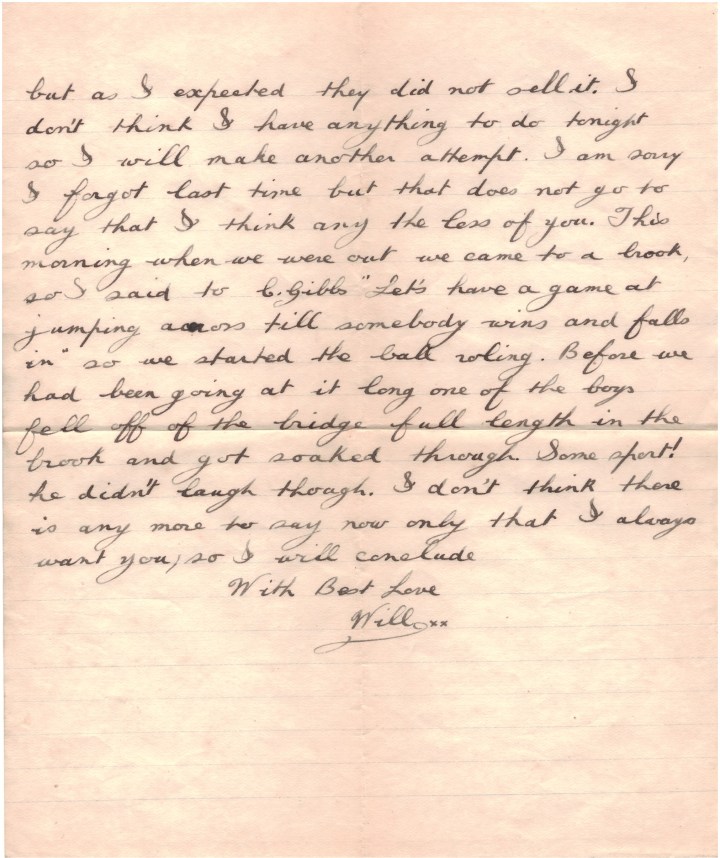 but as I expected they did not sell it. I
don't think I have anything to do tonight
so I will make another attempt. I am sorry
I forgot last time but that does not go to
say that I think any the less of you. This
morning when we were out we came to a brook,
so I said to C. Gibbs "Let's have a game at
jumping across till somebody wins and falls
in" so we started the ball roling. Before we
had been going at it long one of the boys
fell off of the bridge full length in the
brook and got soaked through. Some sport!
he didn't laugh though. I don't think there
is any more to say now only that I always
want you, so I will conclude
With Best Love
Will xx